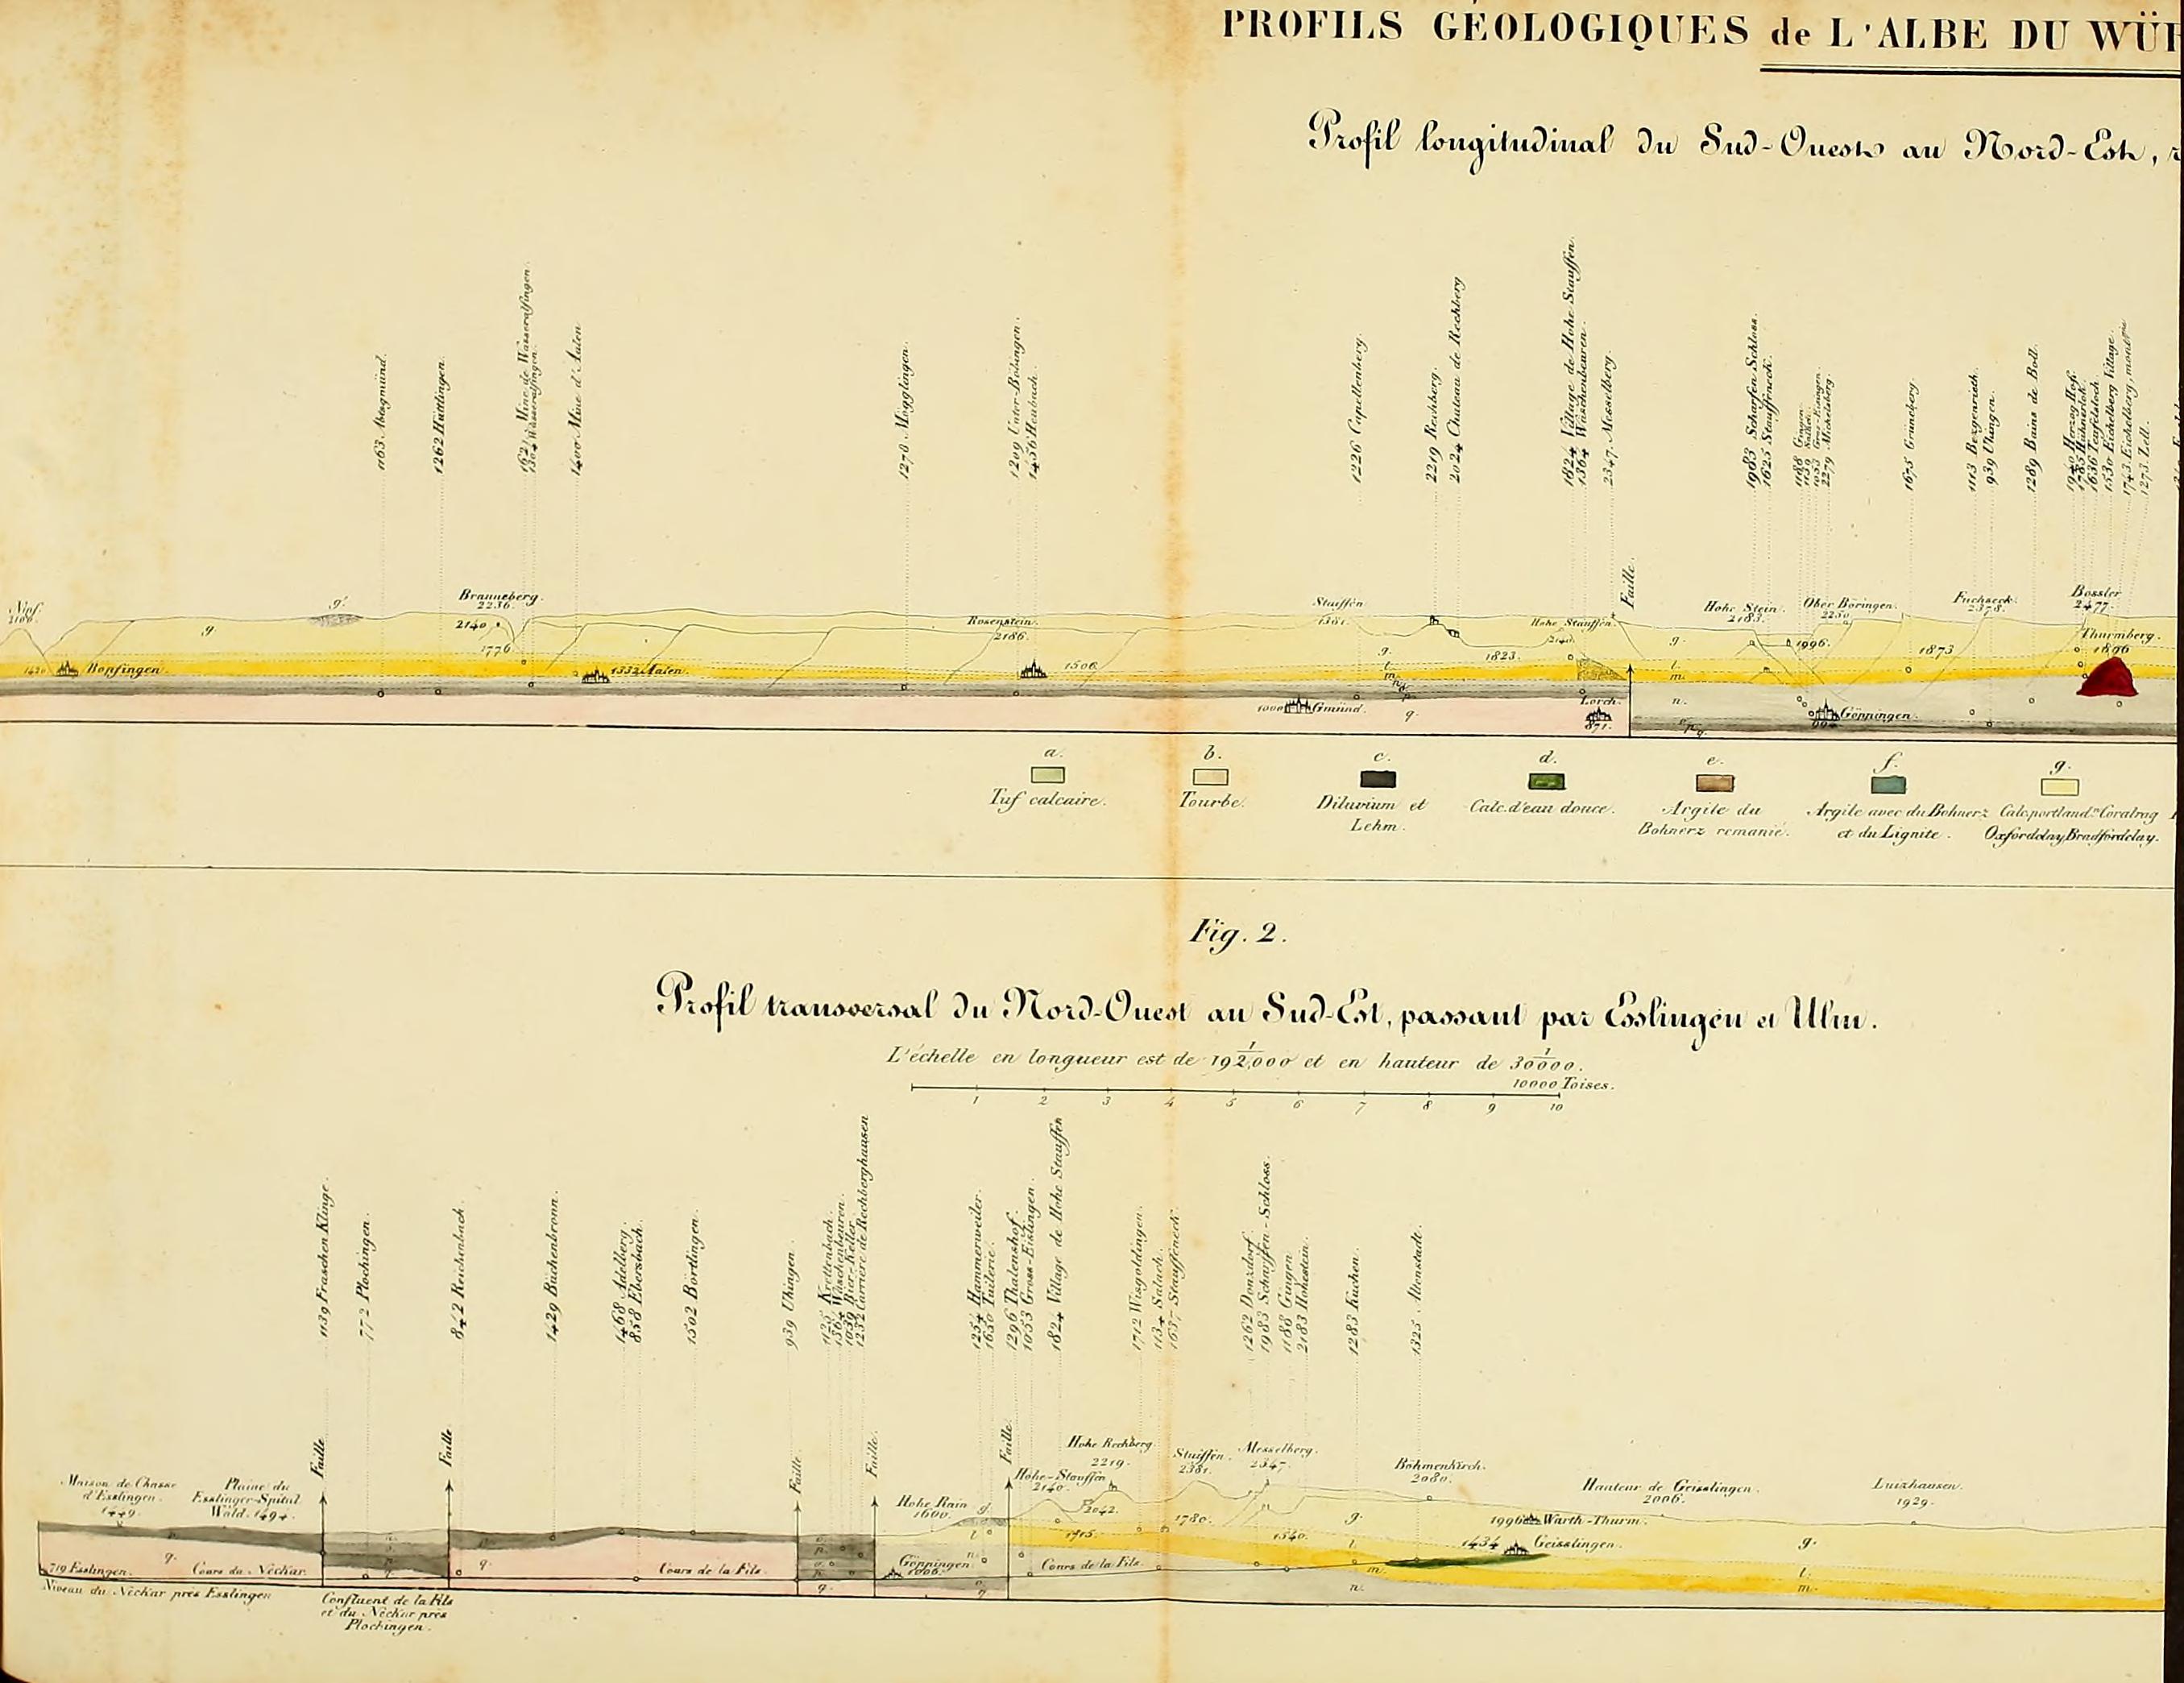 PROFILS GÉOLOGIQUES de L'ALBE DU WÜR
Profil longitudinal du Sud-Ouest au Nord-Est,
1163 Abtsgmünd.
1262 Hüttlingen.
Mine de Wasseralfingen.
1304 Wasseralfingen.
1400 Mine d'Aalen
1278 Mögglingen.
1209 Unter-Böbingen.
1436 Heubach.
1226 Capellenberg.
2219 Rechberg.
2024 Chateau de Rechberg
1824 Village de Hohe Stauffen.
1364 Wäschenbeuren.
2347 Messelberg.
Faille.
1983 Scharfen Schloss.
1625 Stauffeneck.
1188 Gingen.
1053 Gross-Eisingen.
2279 Michelsberg.
1675 Grüneberg
1113 Bezgenrieth.
939 Uhingen.
1289 Bains de Boll.
1940 Herzog Hof.
1636 Teufelsloch.
1530 Eichelberg Village.
1743 Eichelberg, montagne
1273 Zell.
Nipf.
g.
g.
Brauneberg.
2236.
2140
1776
Rosenstein.
2186.
Stuiffen
1381.
Hohe Stauffen.
2140.
Hohe Stein.
2183.
Ober Böringen.
2250
Fuchseck.
2378.
Bossler
2477.
Thurmberg.
1896
1420 Bopfingen.
1332 Aalen.
1506
1823.
1996.
1873
g.
l.
m.
g.
l.
m.
n.
1000 Gmünd.
q.
Lorch.
871.
Göppingen.
a.
Tuf calcaire.
b.
Tourbe.
c.
Diluvium et
Lehm.
d.
Calc. d'eau douce.
e.
Argile du
Bohnerz remanié.
f.
Argile avec du Bohnerz
et du Lignite.
g.
Calc. portland.n Coralrag
Oxfordclay, Bradfordclay.
Fig. 2.
Profil transversal du Nord-Ouest au Sud-Est, passant par Esslingen et Ulm.
L'échelle en longueur est de 1/192,000 et en hauteur de 1/30000.
10000 Toises.
1 2 3 4 5 6 7 8 9 10
1139 Fraschen Klinge.
772 Plochingen.
842 Reichenbach.
1429 Büchenbronn.
1468 Adelberg.
858 Ebersbach.
1502 Börtlingen.
939 Uhingen.
1125 Krettenbach.
1364 Wäschenbeuren.
1039 Bier-Keller.
1232 Carriere de Rechberghausen
1254 Hammerweiler.
1630 Tuilerie.
1296 Thalenshof.
1053 Gross-Eislingen.
1824 Village de Hohe Stauffen
1712 Wisgoldingen.
1134 Salach.
1637 Stauffeneck.
1262 Donzdorf.
1983 Scharffen-Schloss.
1188 Gingen
2183 Hohestein.
1283 Kuchen.
1325 Altenstadt.
Maison de Chasse
d'Esslingen.
1449.
Plaine du
Esslinger-Spital
Wald. 1494.
Faille
Faille
Faille
Faille.
Faille
Hohe Rain
1600.
Hohe-Stauffen
2140.
Hohe Rechberg.
2219.
2042.
Stuiffen.
2381.
Messelberg.
2347.
Böhmenkirch.
2080.
Hauteur de Geisslingen.
2006.
Luizhausen.
1929.
1996 Warth-Thurm.
1434 Geisslingen.
1715.
1780.
1540.
g.
l.
m.
n.
g.
l.
m.
719 Esslingen.
q.
Cours du Néckar.
q.
Cours de la Fils.
q.
Göppingen.
1006.
Cours de la Fils.
Niveau du Néckar près Esslingen
Confluent de la Fils
et du Néckar près
Plochingen.